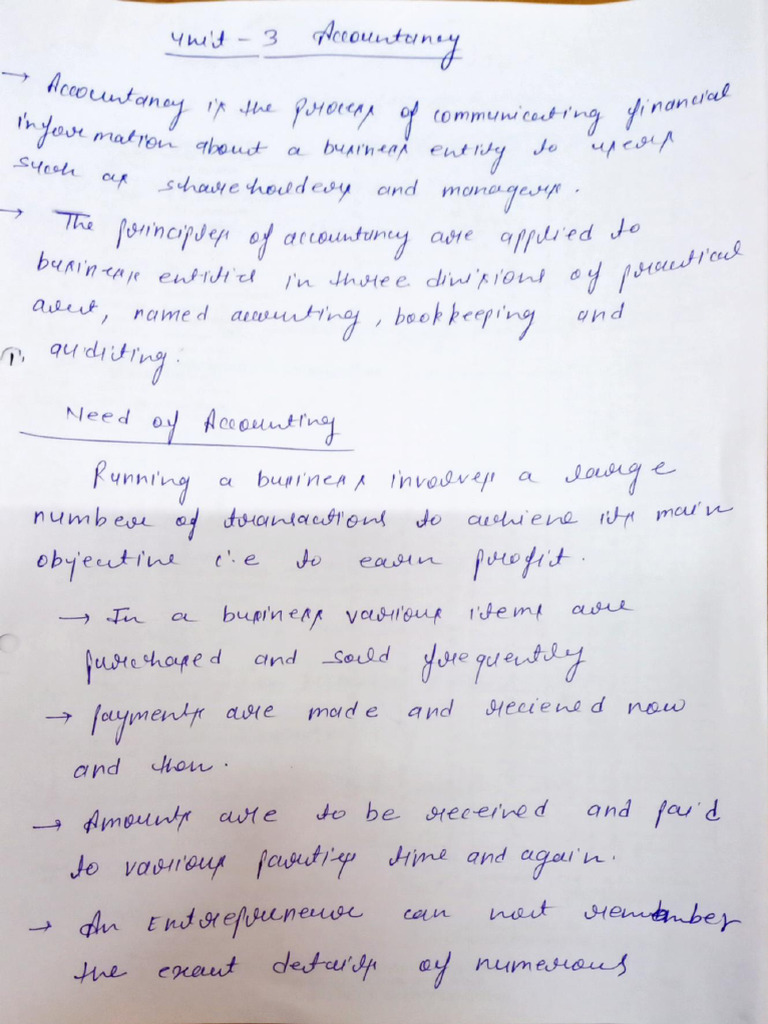 Unit - 3 Accountancy
→ Accountancy is the process of communicating financial
information about a business entity to users
such as shareholders and managers.
→ The principles of accountancy are applied to
business entities in three divisions of practical
art, named accounting, bookkeeping and
1. auditing.
Need of Accounting
Running a business involves a large
number of transactions to achieve its main
objective i.e to earn profit.
→ In a business various items are
purchased and sold frequently
→ payments are made and recieved now
and then.
→ Amounts are to be received and paid
to various parties time and again.
→ An Entrepreneur can not remember
the exact details of numerous